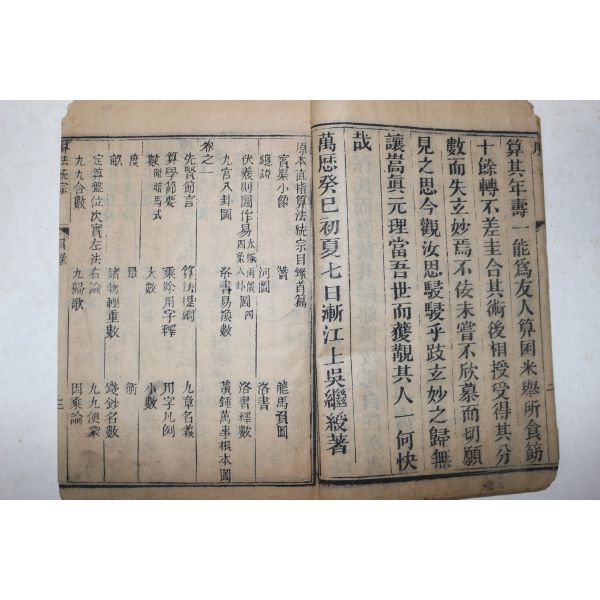 序
算其年壽一能爲友人算囷米舉所食筯
十餘轉不差圭合其術後相授受得其分
數而失玄妙焉不佞未嘗不欣慕而切願
見之思今觀汝思駸駸乎跂玄妙之歸無
讓嵩眞元理當吾世而獲觀其人一何快
哉
萬歷癸巳初夏七日漸江上吳繼綬著
原本直指算法統宗目錄首篇
賓渠小像 贊 龍馬負圖
總說 河圖 洛書
伏羲則圖作易 太極兩儀四象八卦圖四 洛書釋數
九宮八卦圖 洛書易換數 黃鍾萬事根本圖
卷之一
先賢節言 算法提綱 九章名義
算學節要 乘除用字釋 用字凡例
數 附暗馬式 大數 小數
度 量 衡
畝 諸物輕重數 錢鈔名數
定算盤位次實左法右論 九九便蒙
九九合數 九歸歌 因乘論
算法統宗 目錄 三